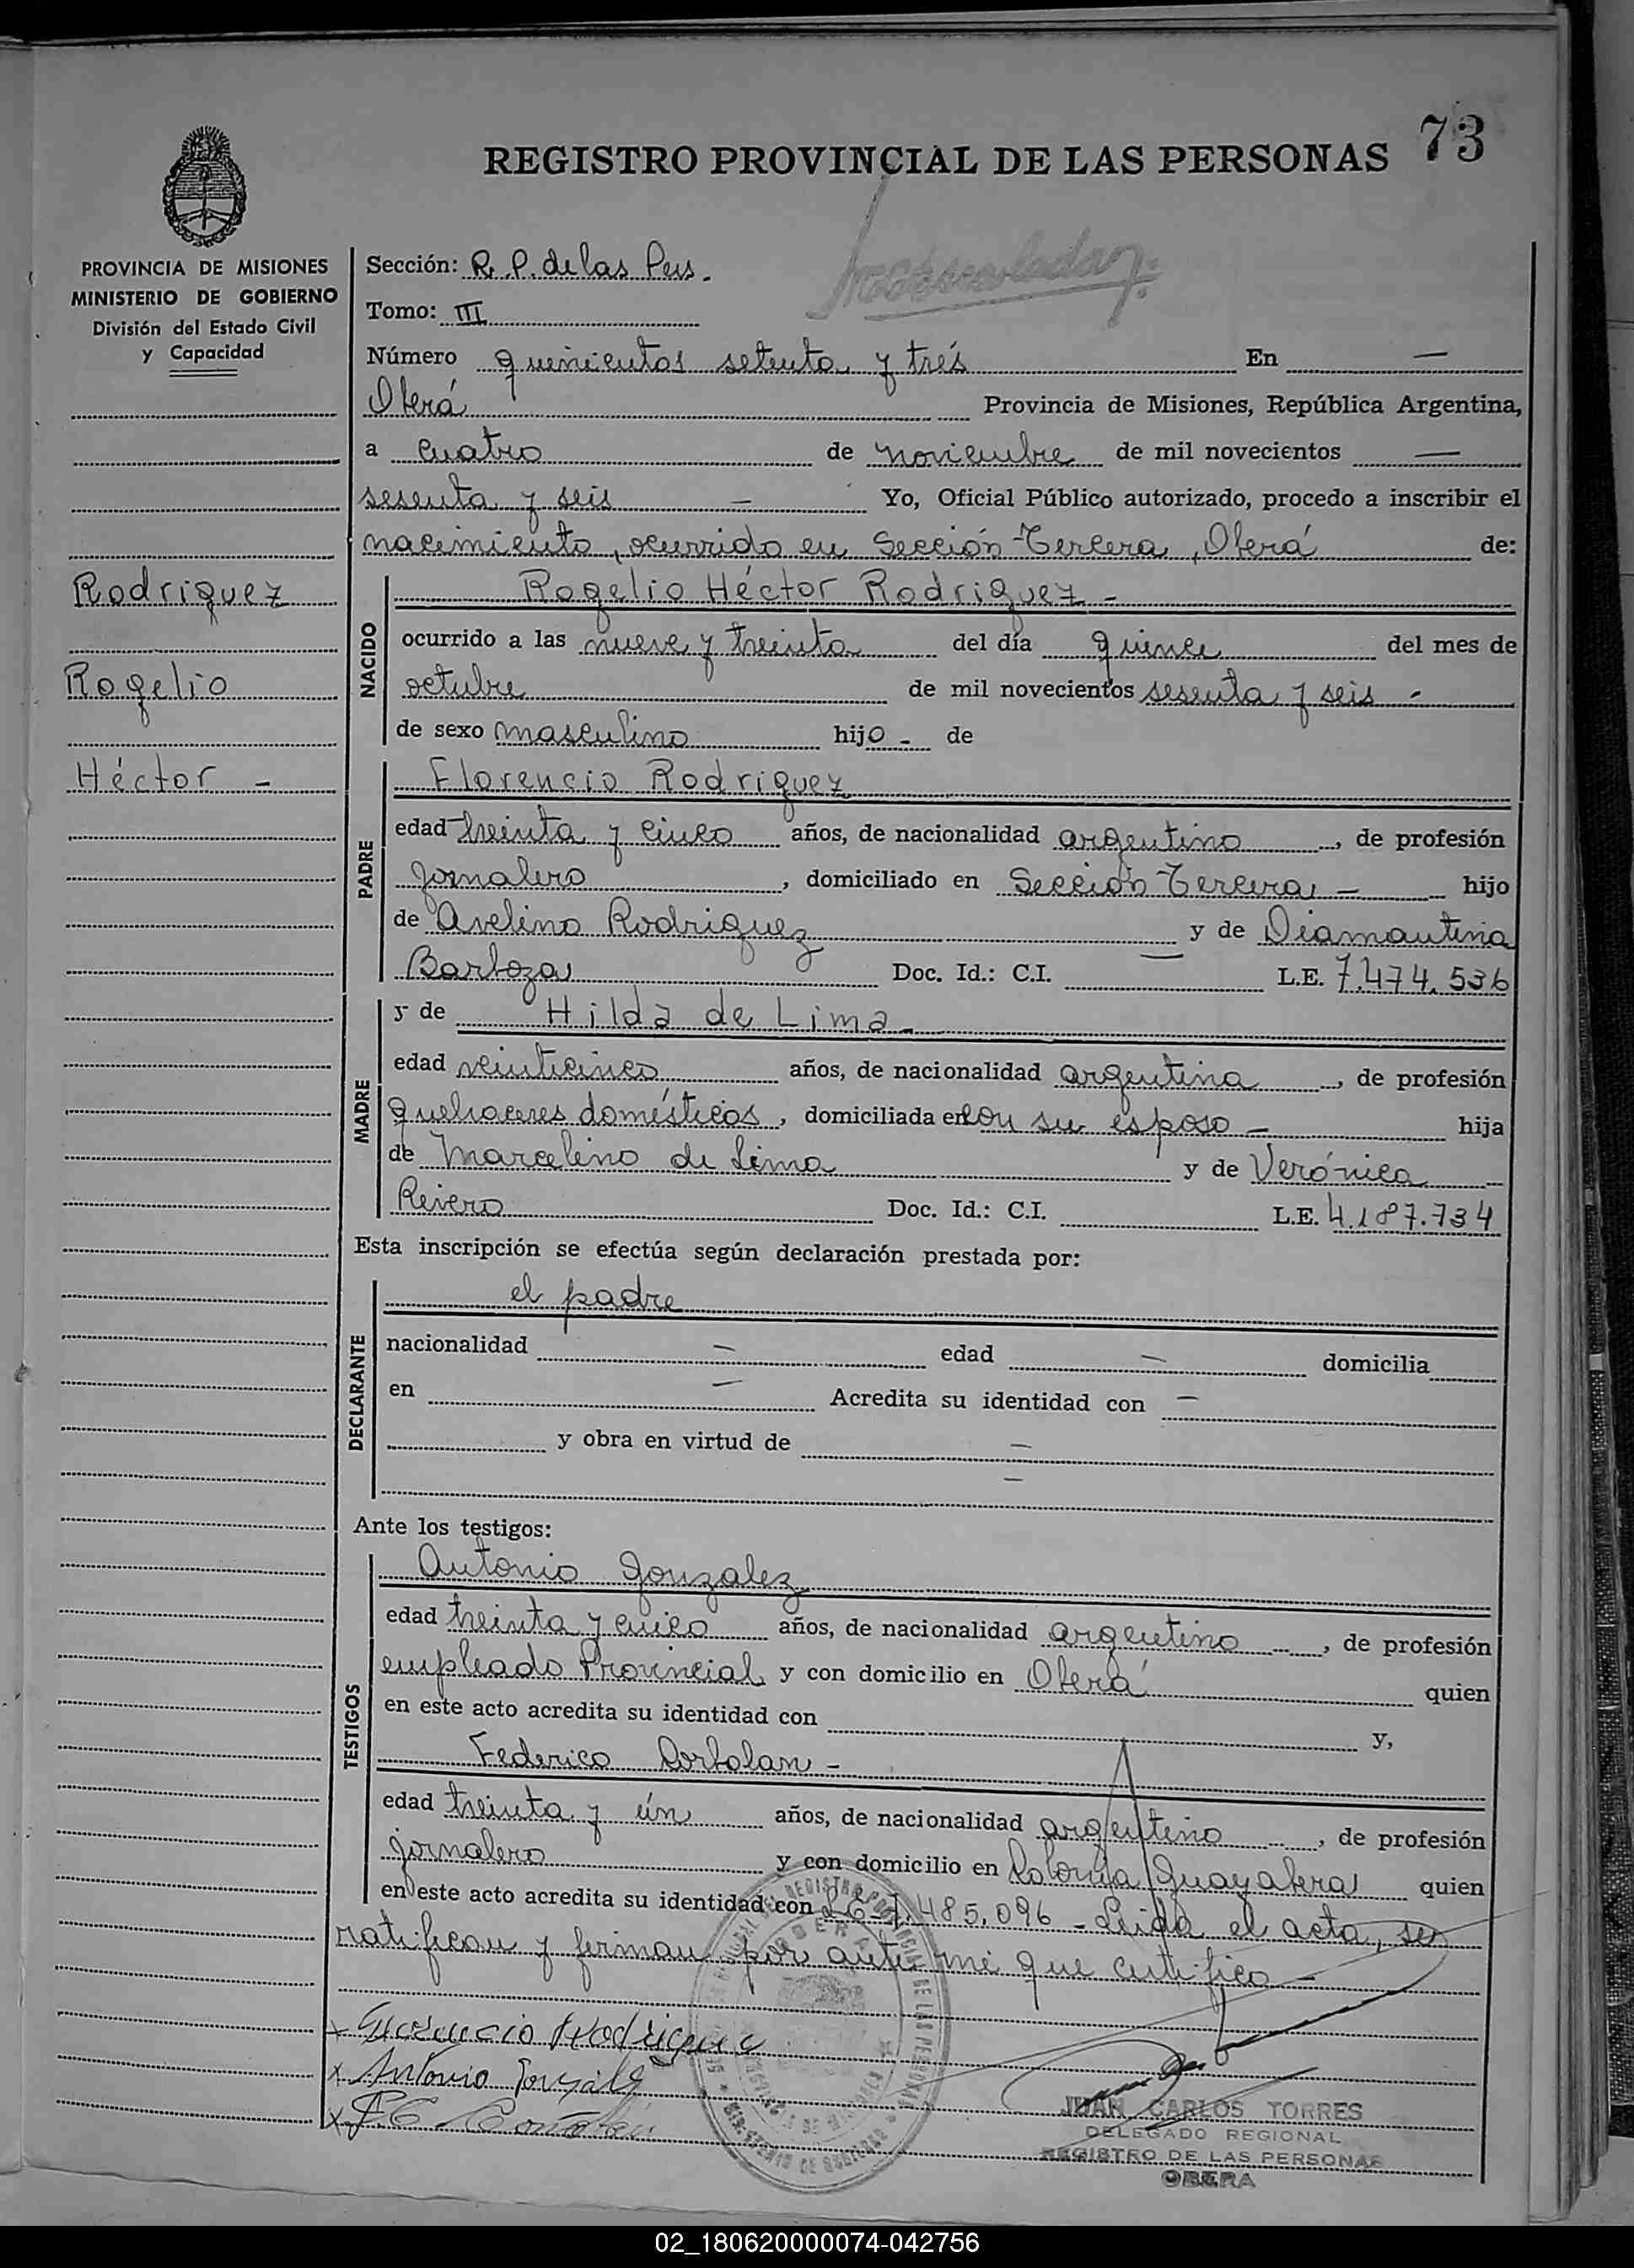 73
REGISTRO PROVINCIAL DE LAS PERSONAS
PROVINCIA DE MISIONES
MINISTERIO DE GOBIERNO
División del Estado Civil
y Capacidad
Rodriguez
Rogelio
Héctor -
Sección: R. P. de las Pers.
Tomo: III
Número quinientos setenta y trés En —
Oberá Provincia de Misiones, República Argentina,
a cuatro de noviembre de mil novecientos —
sesenta y seis — Yo, Oficial Público autorizado, procedo a inscribir el
nacimiento, ocurrido en Sección Tercera, Oberá de:
NACIDO
Rogelio Héctor Rodriguez -
ocurrido a las nueve y treinta del día quince del mes de
octubre de mil novecientos sesenta y seis -
de sexo masculino hijo - de
PADRE
Florencio Rodriguez
edad treinta y cinco años, de nacionalidad argentino, de profesión
jornalero, domiciliado en Sección Tercera — hijo
de Avelino Rodriguez y de Diamantina
Barboza Doc. Id.: C.I. — L.E. 7.474.536
MADRE
y de Hilda de Lima -
edad veinticinco años, de nacionalidad argentina, de profesión
quehaceres domésticos, domiciliada en con su esposo — hija
de Marcelino de Lima y de Verónica
Rivero Doc. Id.: C.I. L.E. 4.187.734
Esta inscripción se efectúa según declaración prestada por:
DECLARANTE
el padre
nacionalidad — edad — domicilia
en — Acredita su identidad con —
y obra en virtud de —
—
Ante los testigos:
TESTIGOS
Antonio Gonzalez
edad treinta y cinco años, de nacionalidad argentino, de profesión
empleado Provincial y con domicilio en Oberá quien
en este acto acredita su identidad con y,
Federico -
edad treinta y ún años, de nacionalidad argentino, de profesión
jornalero y con domicilio en Colonia Guayabera quien
en este acto acredita su identidad con LE 7.485.096 - Leida el acta, se
ratifican y firman por ante mi que certifico -
x Florencio Rodriguez
x Antonio Gonzalez
x
JUAN CARLOS TORRES
DELEGADO REGIONAL
REGISTRO DE LAS PERSONAS
OBERA
02_180620000074-042756